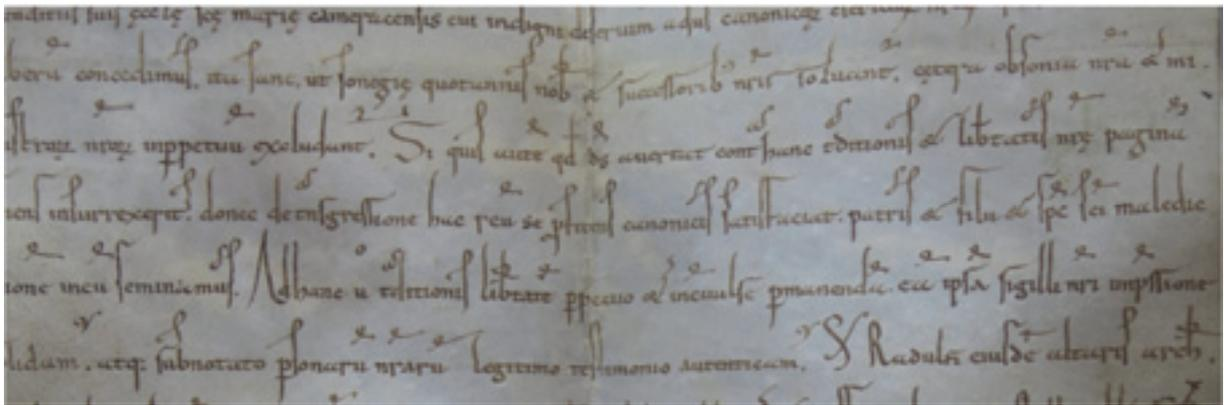 suis eccle sce marie cameracensis cui indigni deseruim ad us canonicoz
concedimus. ita sane, ut sonegie quotannis nob & successorib nris soluant. obsonia nra & mi.
nraz inppetuu excludant. Si quis aute qd ds auertat cont hanc tditionis & libtatis nre pagina
insurrexerit. donec de tnsgressione hac reu se canonicis satisfaciat. patris & filii & sps sci maledic
ione in eu seminamus. Ad hanc u tditionis libtate ppetuo & inconuulse pmanenda. ea ipsa sigilli nri inpssione
atq; subnotato psonaru nraru legitimo testimonio autenticam. Radulfi eiusde altaris arch.